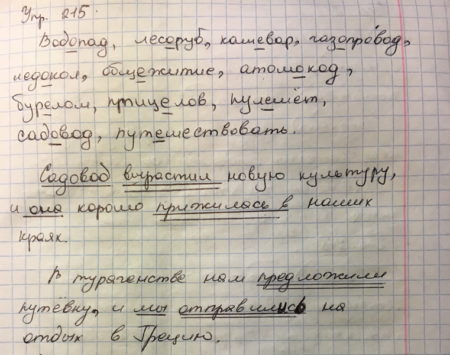 Упр. 215.
Водопад, лесоруб, кашевар, газопровод,
ледокол, общежитие, атомоход,
бурелом, птицелов, пулемёт,
садовод, путешествовать.
Садовод вырастил новую культуру,
и она хорошо прижилась в наших
краях.
В турагенстве нам предложили
путевку, и мы отправились на
отдых в Грецию.